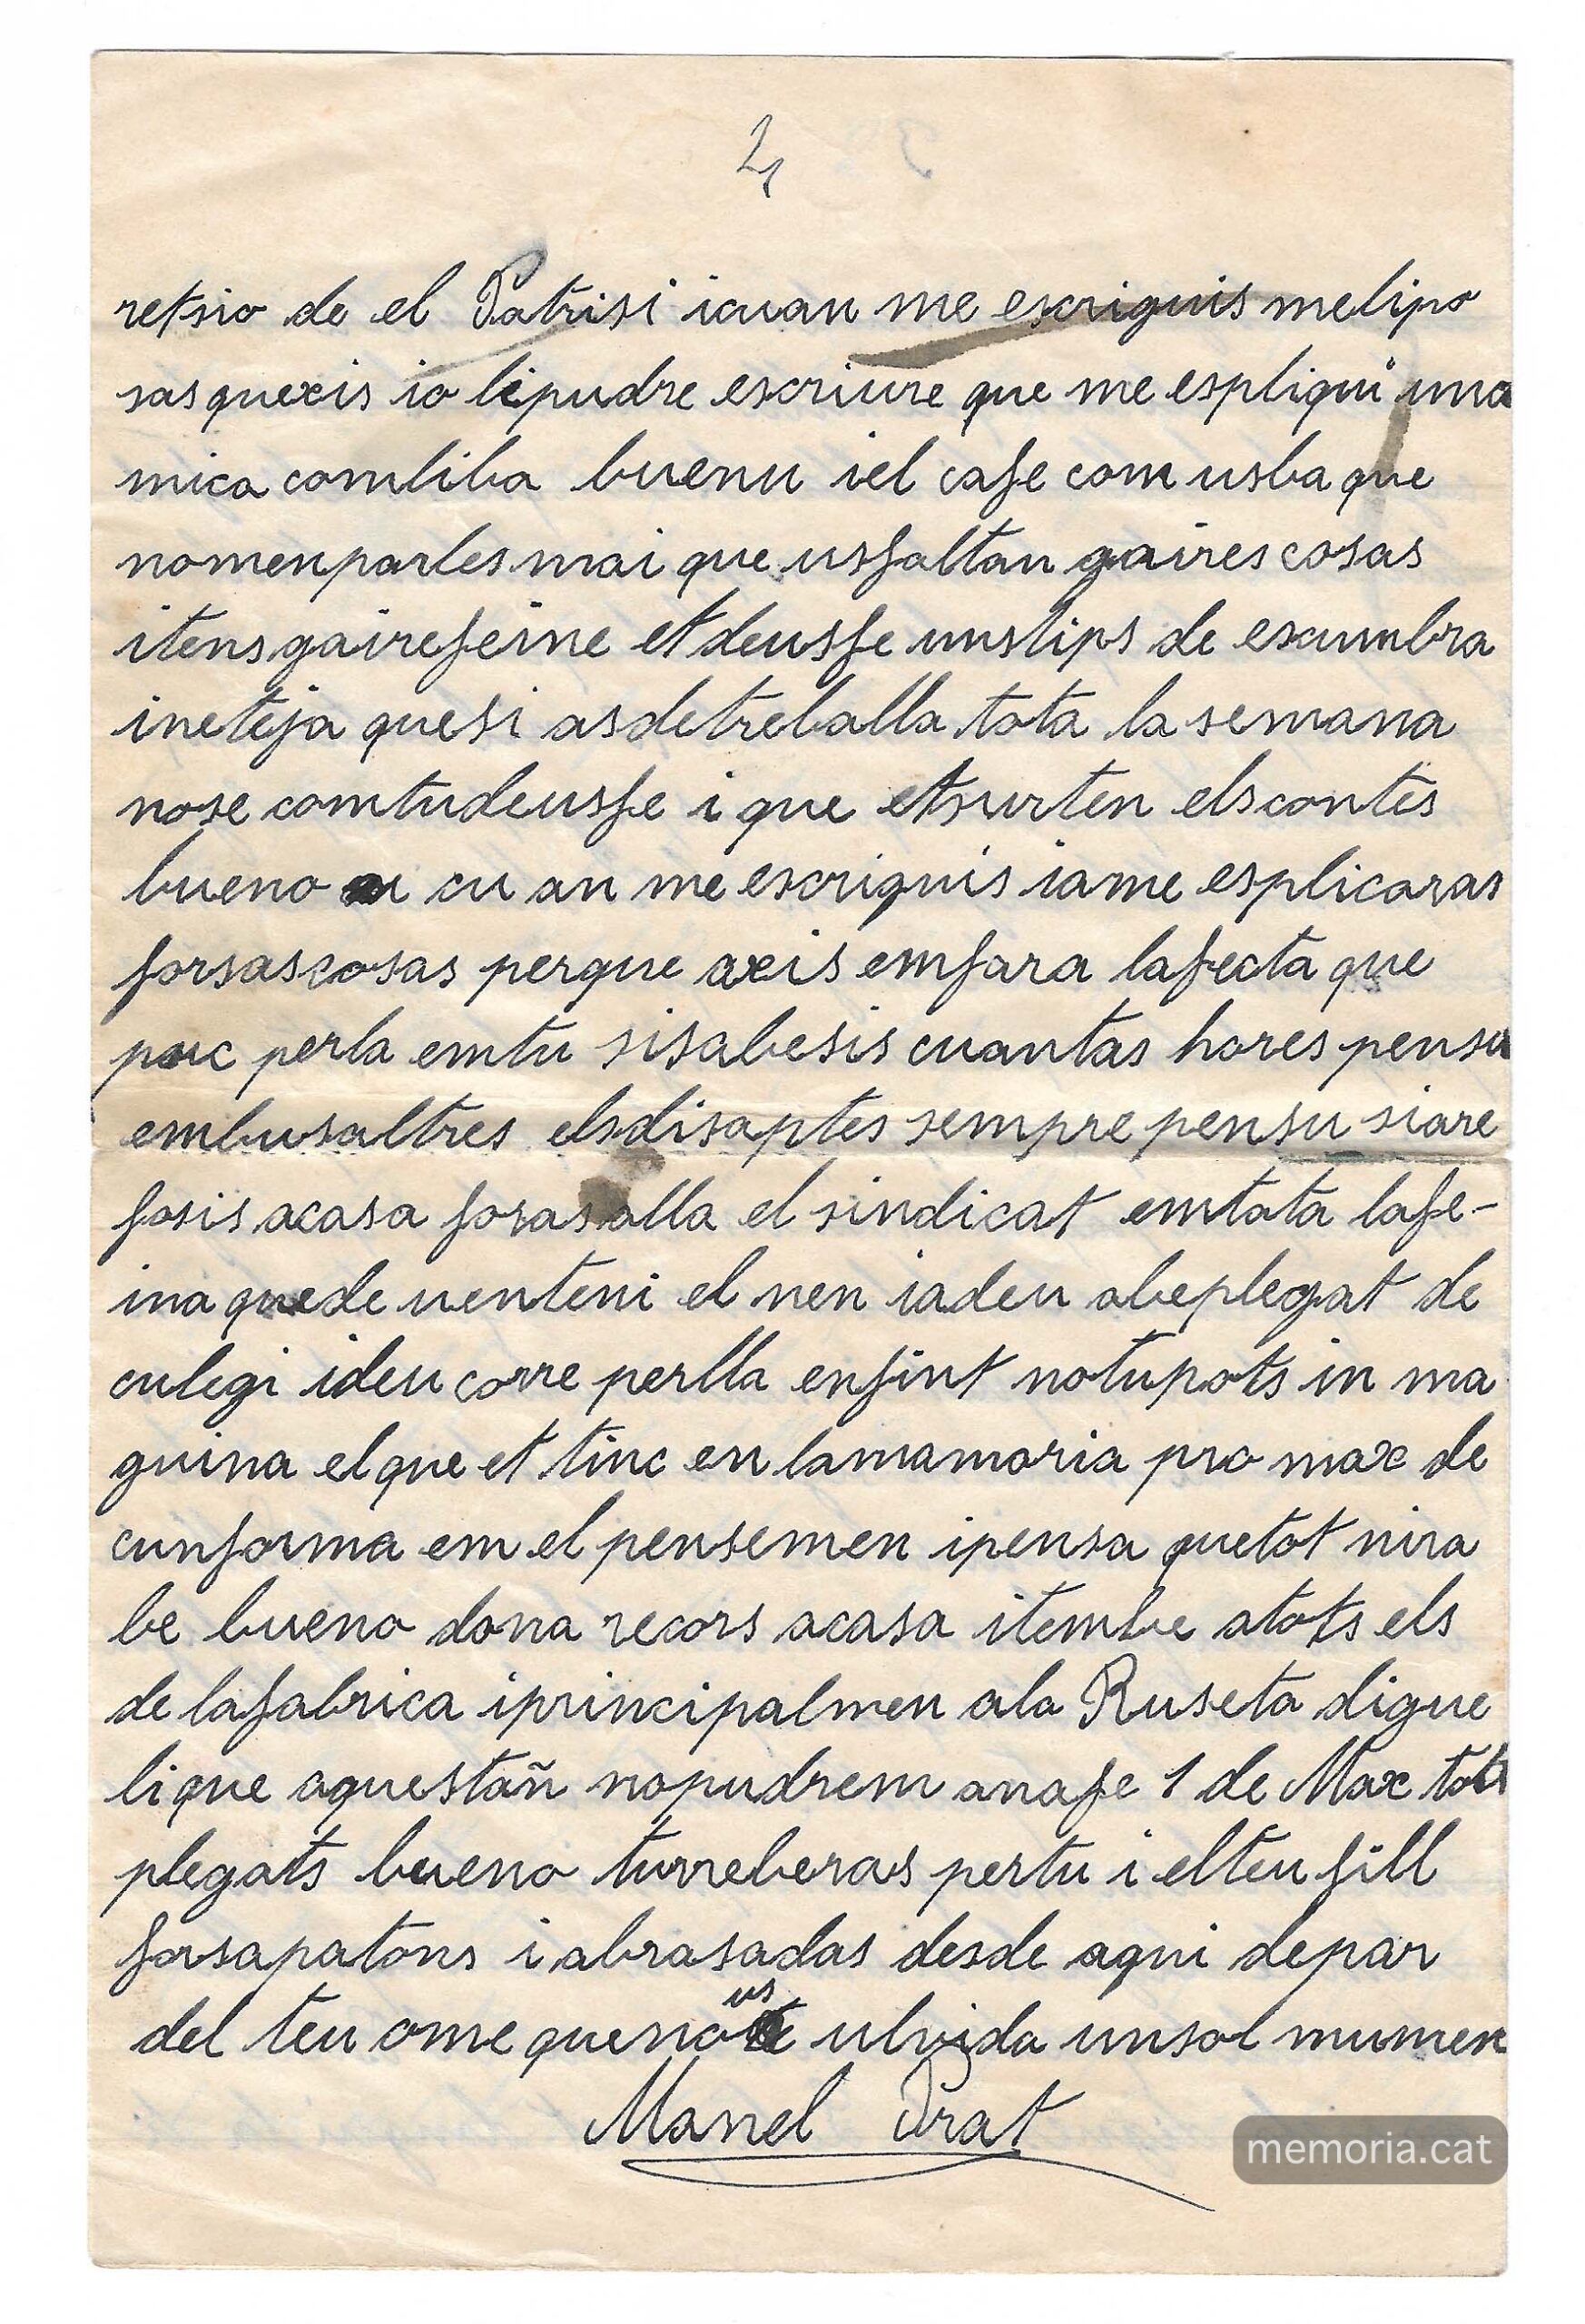 4
retsio de el Patrisi icuan me escriguis melipo
sasquexis io lipudre escriure que me espliqui una
mica comliba buenu iel cafe com usba que
nomenparles mai que usfaltan gaires cosas
itens gairefeine et deusfe unstips de escumbra
ineteja quesi asdetreballa tota la semana
nose comtudeusfe i que etsurten elscontes
bueno cu an me escriguis iame esplicaras
forsascosas perque axis emfara lafecta que
puc perla emtu sisabesis cuantas hores pensu
embusaltres elsdisaptes sempre pensu siare
fosis acasa foras alla el sindicat emtota lafe-
ina quede uenteni el nen iadeu abeplegat de
culegi ideu corre perlla enfint notupots in ma
guina elque et tinc en lamamoria pro max de
cunforma em el pensemen ipensa quetot nira
be bueno dona recors acasa itembe atots els
de lafabrica iprincipalmen ala Ruseta digue
li que aquestañ nopudrem anafe 1 de Max tots
plegats bueno turreberas pertu i elteu fill
forsapatons i abrasadas desde aqui depar
del teu ome queno us ulvida unsol mumen
Manel Prat
memoria.cat